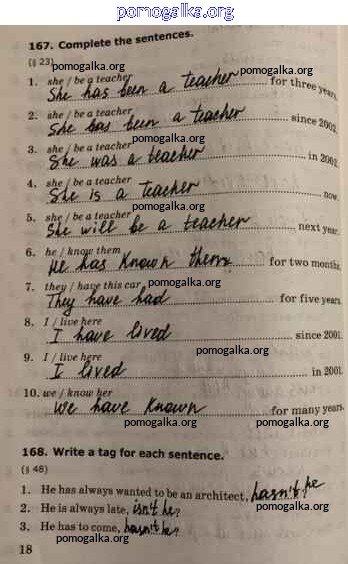 pomogalka.org
167. Complete the sentences.
(§ 23) pomogalka.org
1. she / be a teacher pomogalka.org
She has been a teacher for three years.
2. she / be a teacher pomogalka.org
She has been a teacher since 2002.
pomogalka.org
3. she / be a teacher
She was a teacher in 2002.
pomogalka.org
4. she / be a teacher
She is a teacher now.
pomogalka.org
5. she / be a teacher
She will be a teacher next year.
6. he / know them pomogalka.org
He has known them for two months.
7. they / have this car pomogalka.org
They have had for five years.
8. I / live here
I have lived since 2001.
pomogalka.org
9. I / live here
I lived in 2001.
pomogalka.org
10. we / know her
We have known for many years.
pomogalka.org pomogalka.org
168. Write a tag for each sentence.
(§ 48) pomogalka.org
1. He has always wanted to be an architect, hasn't he?
2. He is always late, isn't he? pomogalka.org
3. He has to come, hasn't he?
18 pomogalka.org
pomogalka.org